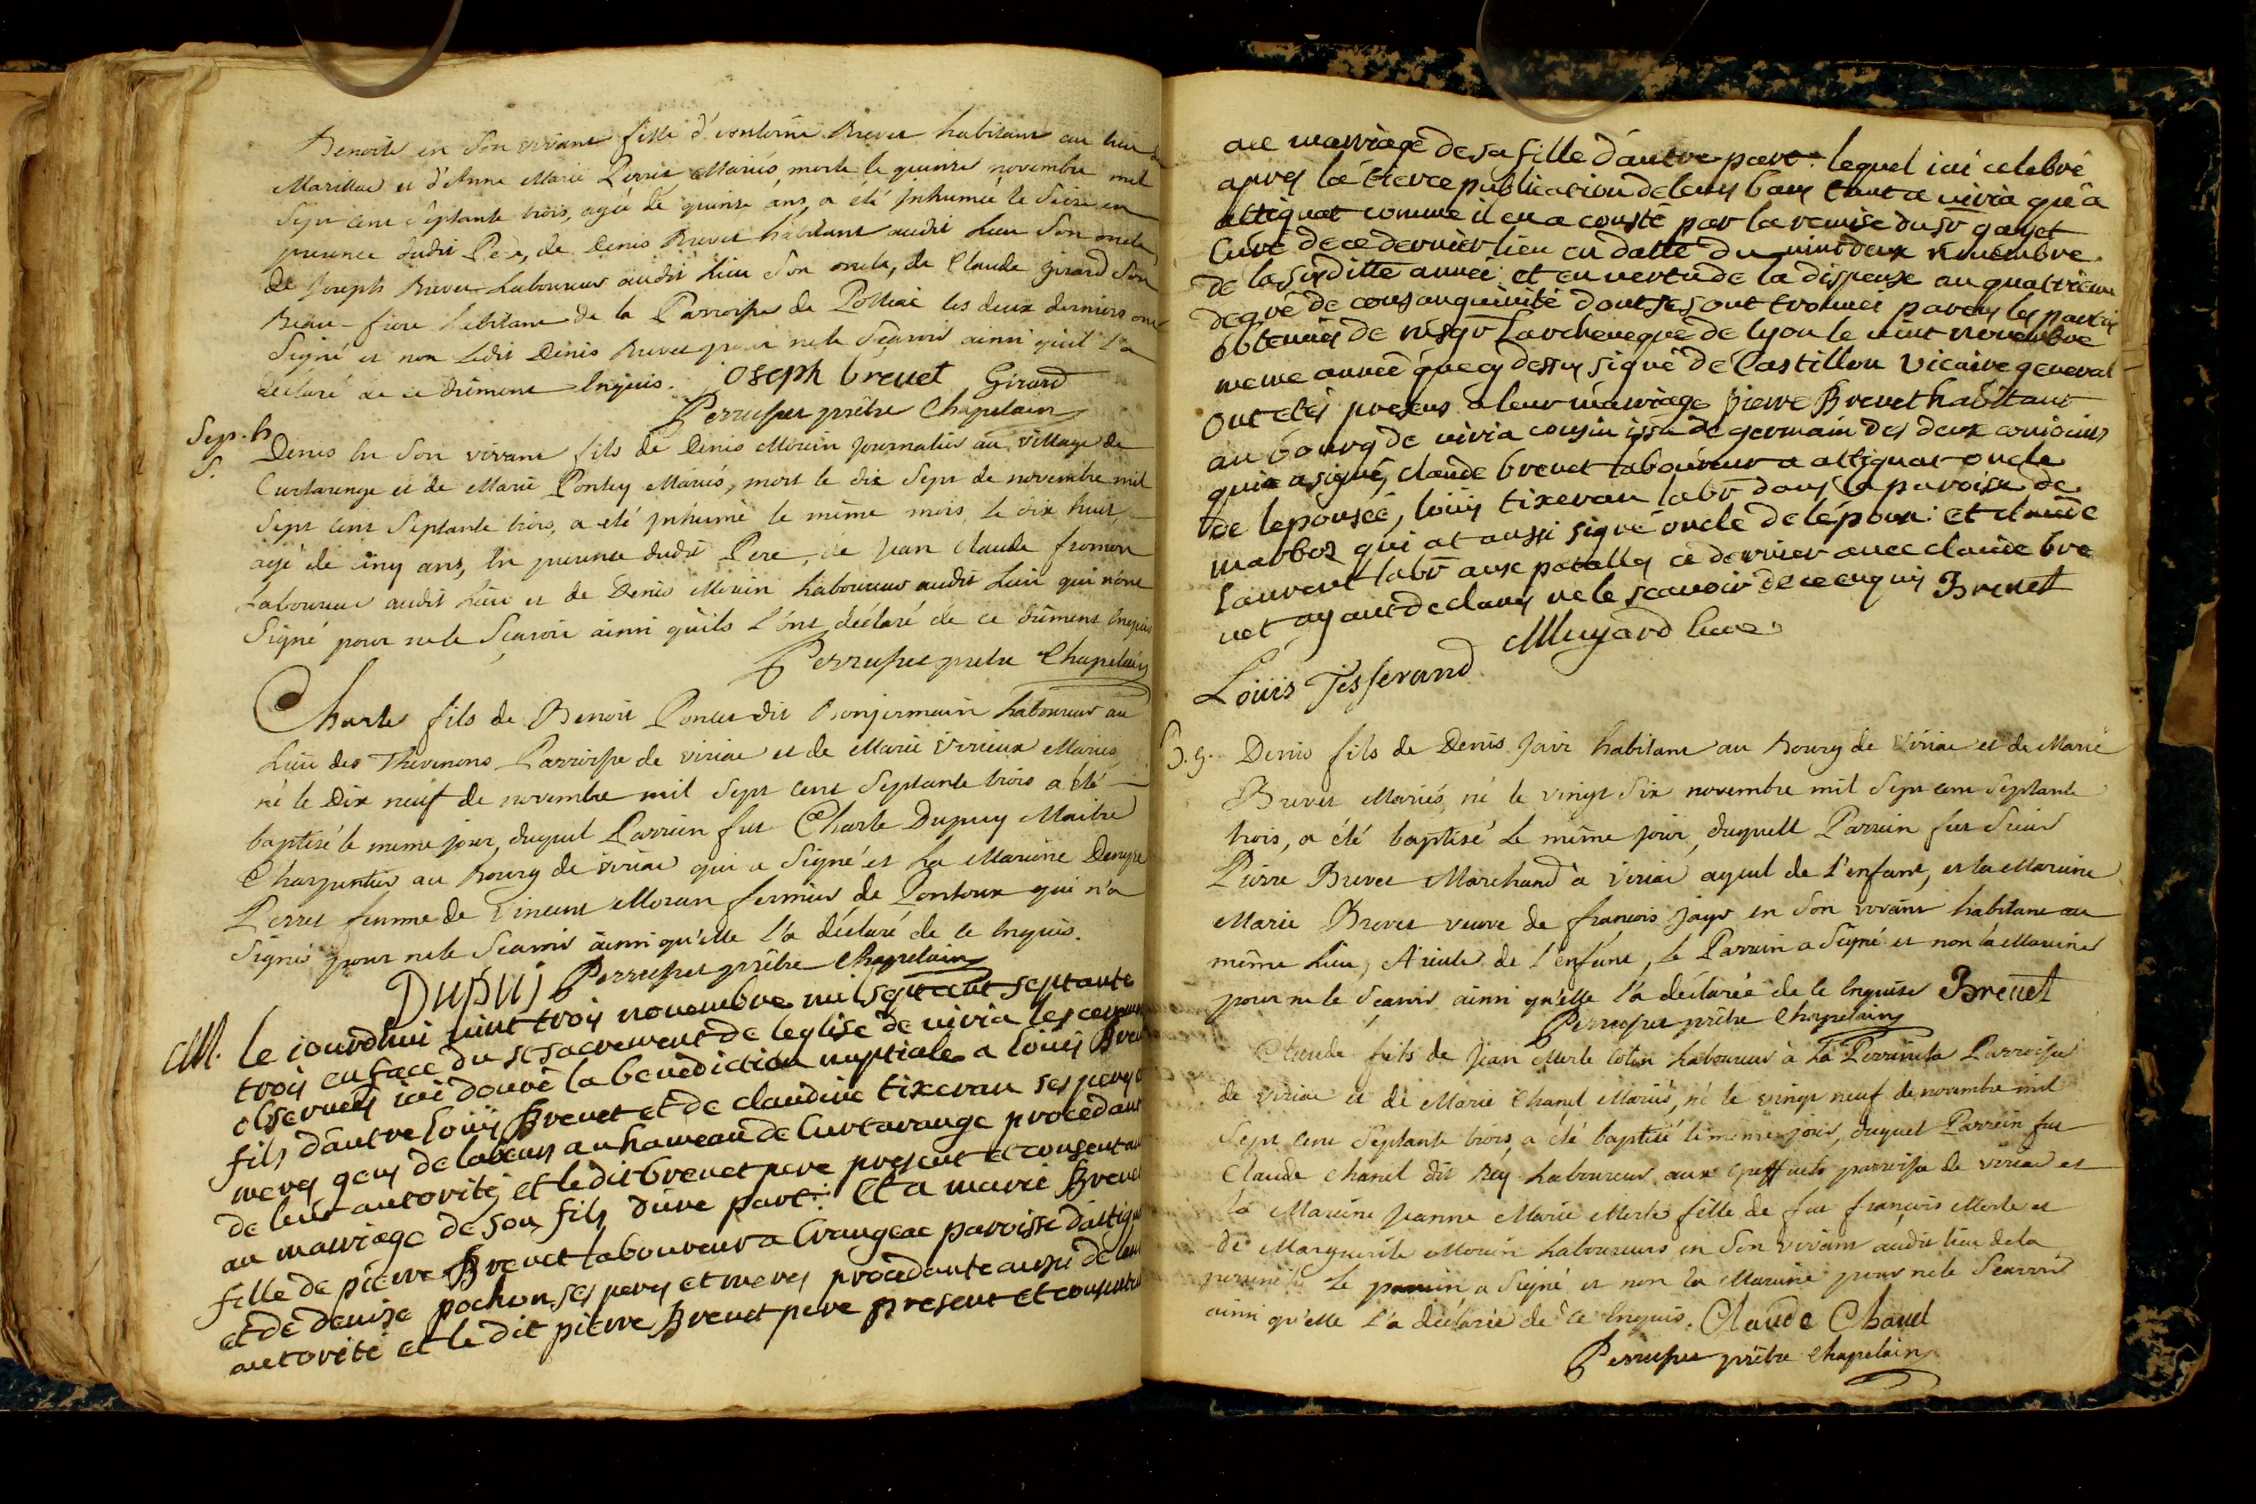 Benoite en son vivant fille d'Antoine Brevet habitant au lieu de
Marillac et d'Anne Marie Perret Mariés, morte le quinze novembre mil
Sept cent Septante trois, agée de quinze ans, a été Inhumée le Seize en
presence dudit Pere, de Denis Brevet habitant audit Lieu Son oncle
de Joseph Brevet Laboureur audit Lieu Son oncle, de Claude Girard Son
Beau-frere habitant de la Parroisse de Polliac les deux derniers ont
Signé et non Ledit Denis Brevet pour ne le Scavoir ainsi qu'il l'a
déclaré de ce Dûment Enquis. Joseph brevet Girard
prêtre Chapelain
Sep. h
S. Denis En Son vivant fils de Denis Morin Journalier au village de
Curtarenge et de Marie Ponthy Mariés, mort le dix Sept de novembre mil
Sept Cent Septante trois, a été Inhumé le même mois, le dix huit,
agé de cinq ans, En presence dudit Pere, de Jean Claude fromon
Laboureur audit Lieu et de Denis Morin Laboureur audit Lieu qui n'ont
Signé pour ne le Scavoir ainsi qu'ils L'ont déclaré de ce dûment Enquis
prêtre Chapelain
Charle fils de Benoit Poncet dit Bonjermain Laboureur au
Lieu des Thevenons Parroisse de viriac et de Marie virieux Mariés
né le Dix neuf de novembre mil Sept Cent Septante trois a été
baptisé le meme jour, duquel Parrein fut Charle Dupuy Maitre
Charpentier au Bourg de viriac qui a Signé et La Mareine Denyse
Perret femme de Vincent Moran fermier de Pontoux qui n'a
Signé pour ne le Scavoir ainsi qu'elle l'a déclaré de ce Enquis.
Dupuj prêtre Chapelain
M. le iourdhui vint trois novembre mil sept cent septante
trois en face du st sacrement de leglise de viria les ceremonies
observées iai donné la benediction nuptiale a loüis Brevet
fils dautre loüis Brevet et de claudine tixeran ses peres et
meres gens de labeur au hameau de Curtarange procedant
de leur autorités et ledit brevet pere present et consentant
au marriage de son fils dune part: Et a marie Brevet
fille de pierre Brevet laboureur a Crangeac paroisse dattignat
et de denise pochon ses peres et meres procedante aussi de leur
autorité et le dit pierre Brevet pere present et consentant
au marriage de sa fille dautre part: lequel iai celebré
apres la tierce publication de leurs bans tant a viria qu'a
attignat comme il en a consté par la remise du sr gayet
Curé de ce dernier lieu en datte du vint deux novembre
de la susditte année: et en vertu de la dispense au quatrieme
degré de consanguinité dont se sont trouvés parens les parties
obtenues de msgr Larcheveque de lyon le vint novembre
meme année que cy dessus signé de Castillon vicaire general
Ont etés presens a leur marriage pierre Brevet habitant
au bourg de viria cousin issu de germain des deux conioins
qui a signé, claude brevet laboureur a attignat oncle
de lepousée, loüis tixeran labr dans la paroisse de
marboz qui at aussi signé oncle de lépoux: et claude
laurent labr aux patalles ce dernier avec claude bre
vet ayant declarés ne le scavoir de ce enquis Brevet
Muyard Curé
Loüis Tisserand
B. g. Denis fils de Denis Javr habitant au Bourg de Viriac et de Marie
Brevet Mariés, né le vingt Six novembre mil Sept cent Septante
trois, a été baptisé le même jour, duquell Parrein fut Sieur
Pierre Brevet Marchand à Viriac ayeul de l'enfant, et la Mareine
Marie Brevet veuve de françois Jayr en Son vivant habitant au
même Lieu, Aïeule de l'enfant, le Parrein a Signé et non la Mareine
pour ne le Scavoir ainsi qu'elle l'a déclarée de ce Enquise Brevet
prêtre Chapelain
Claude fils de Jean Merle Colin Laboureur à La Perrinche Parroisse
de viriac et de Marie Chanel Mariés, né le vingt neuf de novembre mil
Sept Cent Septante trois, a été baptisé le meme jour, duquel Parrein fut
Claude Chanel dit Rey Laboureur aux parroisse de viriac et
La Mareine Jeanne Marie Merle fille de feu françois Merle et
de Marguerite Morin Laboureurs en Son vivant audit lieu de la
le parrein a Signé et non la Mareine pour ne le Scavoir
ainsi qu'elle l'a déclarée de Ce Enquis. Claude Chanel
prêtre Chapelain